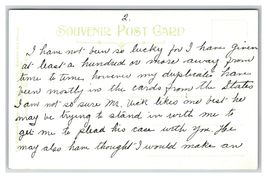 2.
SOUVENIR POST CARD
I have not been so lucky for I have given
at least a hundred or more away from
time to time, however my duplicates have
been mostly in the cards from the States
I am not so sure Mr. Vick likes me best he
may be trying to stand in with me to
get me to plead his case with you. He
may also have thought I would make an